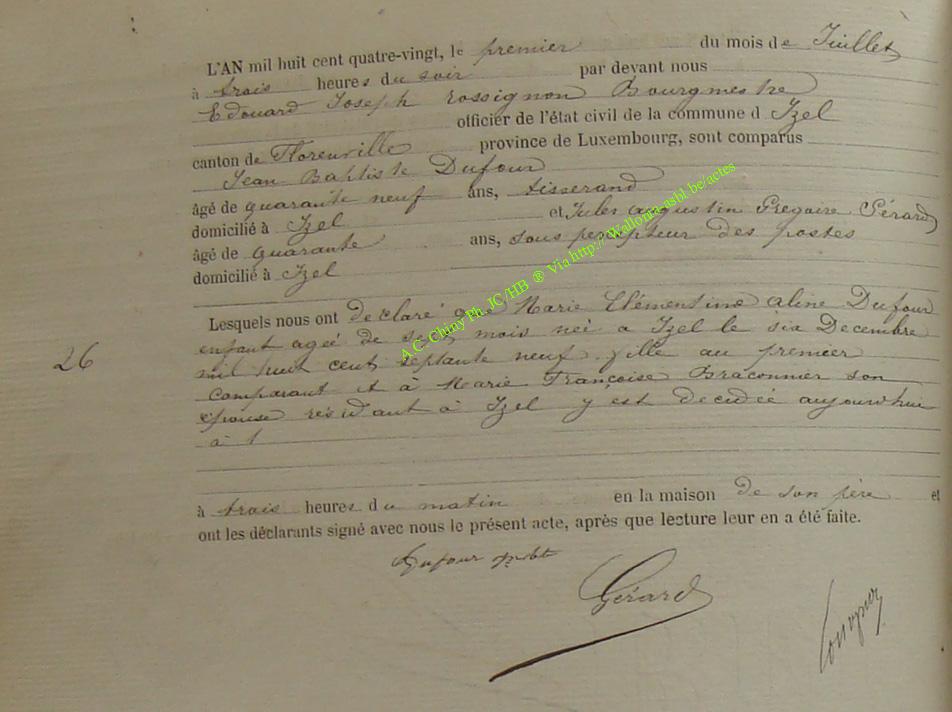 L'AN mil huit cent quatre-vingt, le premier du mois de Juillet
à trois heures du soir par devant nous
Edouard Joseph Rossignon Bourgmestre
officier de l'état civil de la commune d Izel
canton de Florenville province de Luxembourg, sont comparus
Jean Baptiste Dufour
âgé de quarante neuf ans, tisserand
domicilié à Izel et Jules Augustin Gregoire Gérard
âgé de quarante ans, sous percepteur des postes
domicilié à Izel
Lesquels nous ont declaré que Marie Clémentine Aline Dufour
26
enfant ageé de sept mois née a Izel le six Decembre
mil huit cent septante neuf fille au premier
comparant et à Marie Françoise Braconnier son
épouse residant à Izel y est decedée aujourdhui
à
à trois heures du matin en la maison de son père et
ont les déclarants signé avec nous le présent acte, après que lecture leur en a été faite.
Dufour
Gérard
A.C. Chiny Ph. JC/HB ® Via http://Wallonia-asbl.be/actes